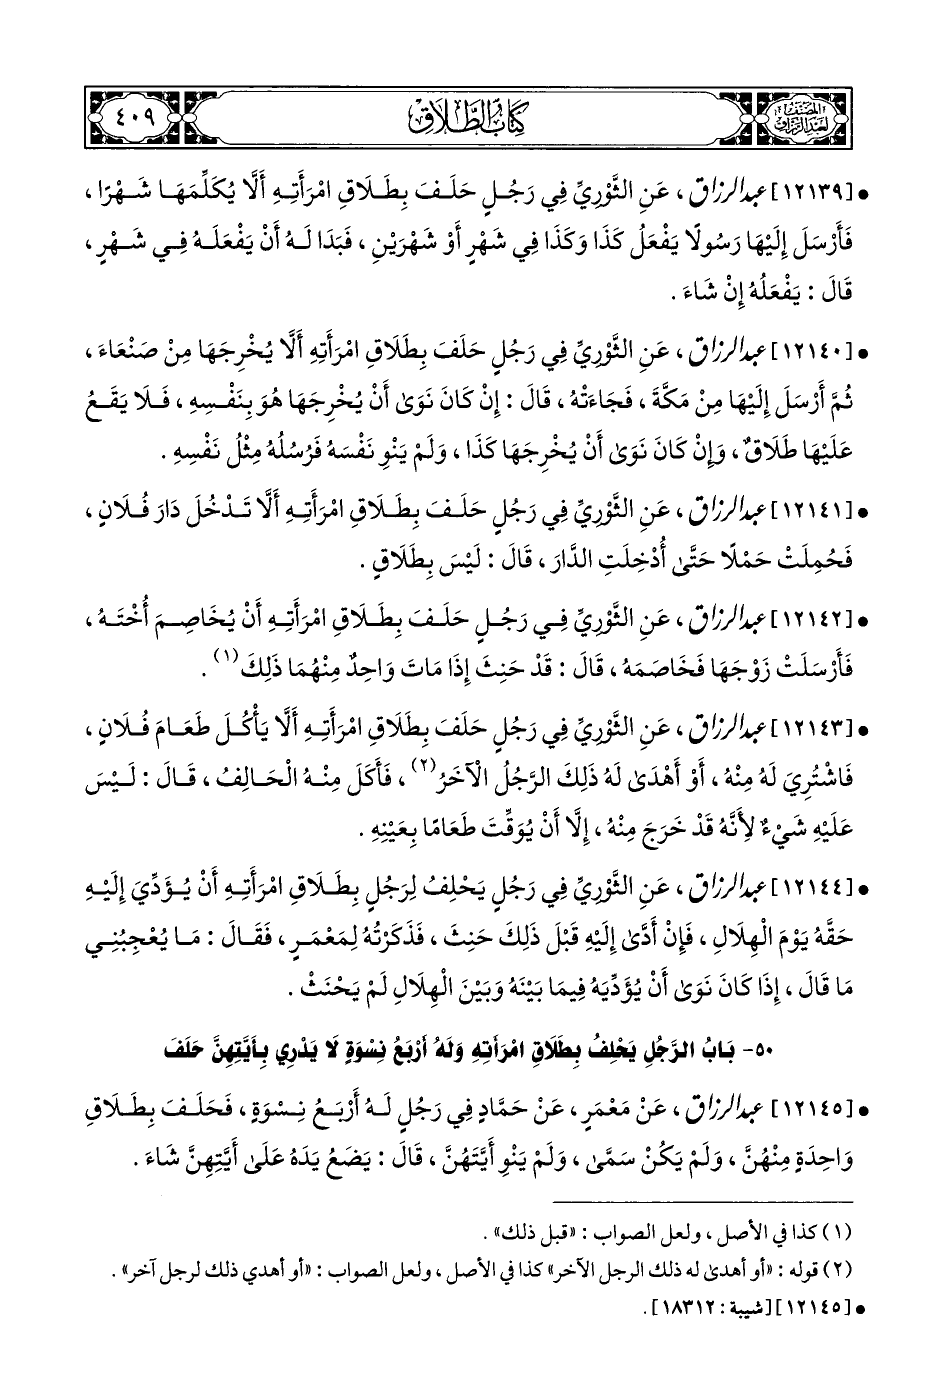 المصنف لعبد الرزاق
كتاب الطلاق
٤٠٩
• [١٢١٣٩] عبد الرزاق، عَنِ الثَّوْرِيِّ فِي رَجُلٍ حَلَفَ بِطَلَاقِ امْرَأَتِهِ أَلَّا يُكَلِّمَهَا شَهْرًا،
فَأَرْسَلَ إِلَيْهَا رَسُولًا يَفْعَلُ كَذَا وَكَذَا فِي شَهْرٍ أَوْ شَهْرَيْنِ، فَبَدَا لَهُ أَنْ يَفْعَلَهُ فِي شَهْرٍ،
قَالَ: يَفْعَلُهُ إِنْ شَاءَ.
• [١٢١٤٠] عبد الرزاق، عَنِ الثَّوْرِيِّ فِي رَجُلٍ حَلَفَ بِطَلَاقِ امْرَأَتِهِ أَلَّا يُخْرِجَهَا مِنْ صَنْعَاءَ،
ثُمَّ أَرْسَلَ إِلَيْهَا مِنْ مَكَّةَ، فَجَاءَتْهُ، قَالَ: إِنْ كَانَ نَوَىٰ أَنْ يُخْرِجَهَا هُوَ بِنَفْسِهِ، فَلَا يَقَعُ
عَلَيْهَا طَلَاقٌ، وَإِنْ كَانَ نَوَىٰ أَنْ يُخْرِجَهَا كَذَا، وَلَمْ يَنْوِ نَفْسَهُ فَرُسُلُهُ مِثْلُ نَفْسِهِ.
• [١٢١٤١] عبد الرزاق، عَنِ الثَّوْرِيِّ فِي رَجُلٍ حَلَفَ بِطَلَاقِ امْرَأَتِهِ أَلَّا تَدْخُلَ دَارَ فُلَانٍ،
فَحُمِلَتْ حَمْلًا حَتَّىٰ أُدْخِلَتِ الدَّارَ، قَالَ: لَيْسَ بِطَلَاقٍ.
• [١٢١٤٢] عبد الرزاق، عَنِ الثَّوْرِيِّ فِي رَجُلٍ حَلَفَ بِطَلَاقِ امْرَأَتِهِ أَنْ يُخَاصِمَ أُخْتَهُ،
فَأَرْسَلَتْ زَوْجَهَا فَخَاصَمَهُ، قَالَ: قَدْ حَنِثَ إِذَا مَاتَ وَاحِدٌ مِنْهُمَا ذَلِكَ(١).
• [١٢١٤٣] عبد الرزاق، عَنِ الثَّوْرِيِّ فِي رَجُلٍ حَلَفَ بِطَلَاقِ امْرَأَتِهِ أَلَّا يَأْكُلَ طَعَامَ فُلَانٍ،
فَاشْتُرِيَ لَهُ مِنْهُ، أَوْ أَهْدَىٰ لَهُ ذَلِكَ الرَّجُلُ الْآخَرُ(٢)، فَأَكَلَ مِنْهُ الْحَالِفُ، قَالَ: لَيْسَ
عَلَيْهِ شَيْءٌ لِأَنَّهُ قَدْ خَرَجَ مِنْهُ، إِلَّا أَنْ يُوَقِّتَ طَعَامًا بِعَيْنِهِ.
• [١٢١٤٤] عبد الرزاق، عَنِ الثَّوْرِيِّ فِي رَجُلٍ يَحْلِفُ لِرَجُلٍ بِطَلَاقِ امْرَأَتِهِ أَنْ يُؤَدِّيَ إِلَيْهِ
حَقَّهُ يَوْمَ الْهِلَالِ، فَإِنْ أَدَّىٰ إِلَيْهِ قَبْلَ ذَلِكَ حَنِثَ، فَذَكَرْتُهُ لِمَعْمَرٍ، فَقَالَ: مَا يُعْجِبُنِي
مَا قَالَ، إِذَا كَانَ نَوَىٰ أَنْ يُؤَدِّيَهُ فِيمَا بَيْنَهُ وَبَيْنَ الْهِلَالِ لَمْ يَحْنَثْ.
٥٠- بَابُ الرَّجُلِ يَحْلِفُ بِطَلَاقِ امْرَأَتِهِ وَلَهُ أَرْبَعُ نِسْوَةٍ لَا يَدْرِي بِأَيَّتِهِنَّ حَلَفَ
• [١٢١٤٥] عبد الرزاق، عَنْ مَعْمَرٍ، عَنْ حَمَّادٍ فِي رَجُلٍ لَهُ أَرْبَعُ نِسْوَةٍ، فَحَلَفَ بِطَلَاقِ
وَاحِدَةٍ مِنْهُنَّ، وَلَمْ يَكُنْ سَمَّىٰ، وَلَمْ يَنْوِ أَيَّتَهُنَّ، قَالَ: يَضَعُ يَدَهُ عَلَىٰ أَيَّتِهِنَّ شَاءَ.
(١) كذا في الأصل، ولعل الصواب: «قبل ذلك».
(٢) قوله: «أو أهدىٰ له ذلك الرجل الآخر» كذا في الأصل، ولعل الصواب: «أو أهدي ذلك لرجل آخر».
• [١٢١٤٥] [شيبة: ١٨٣١٢].